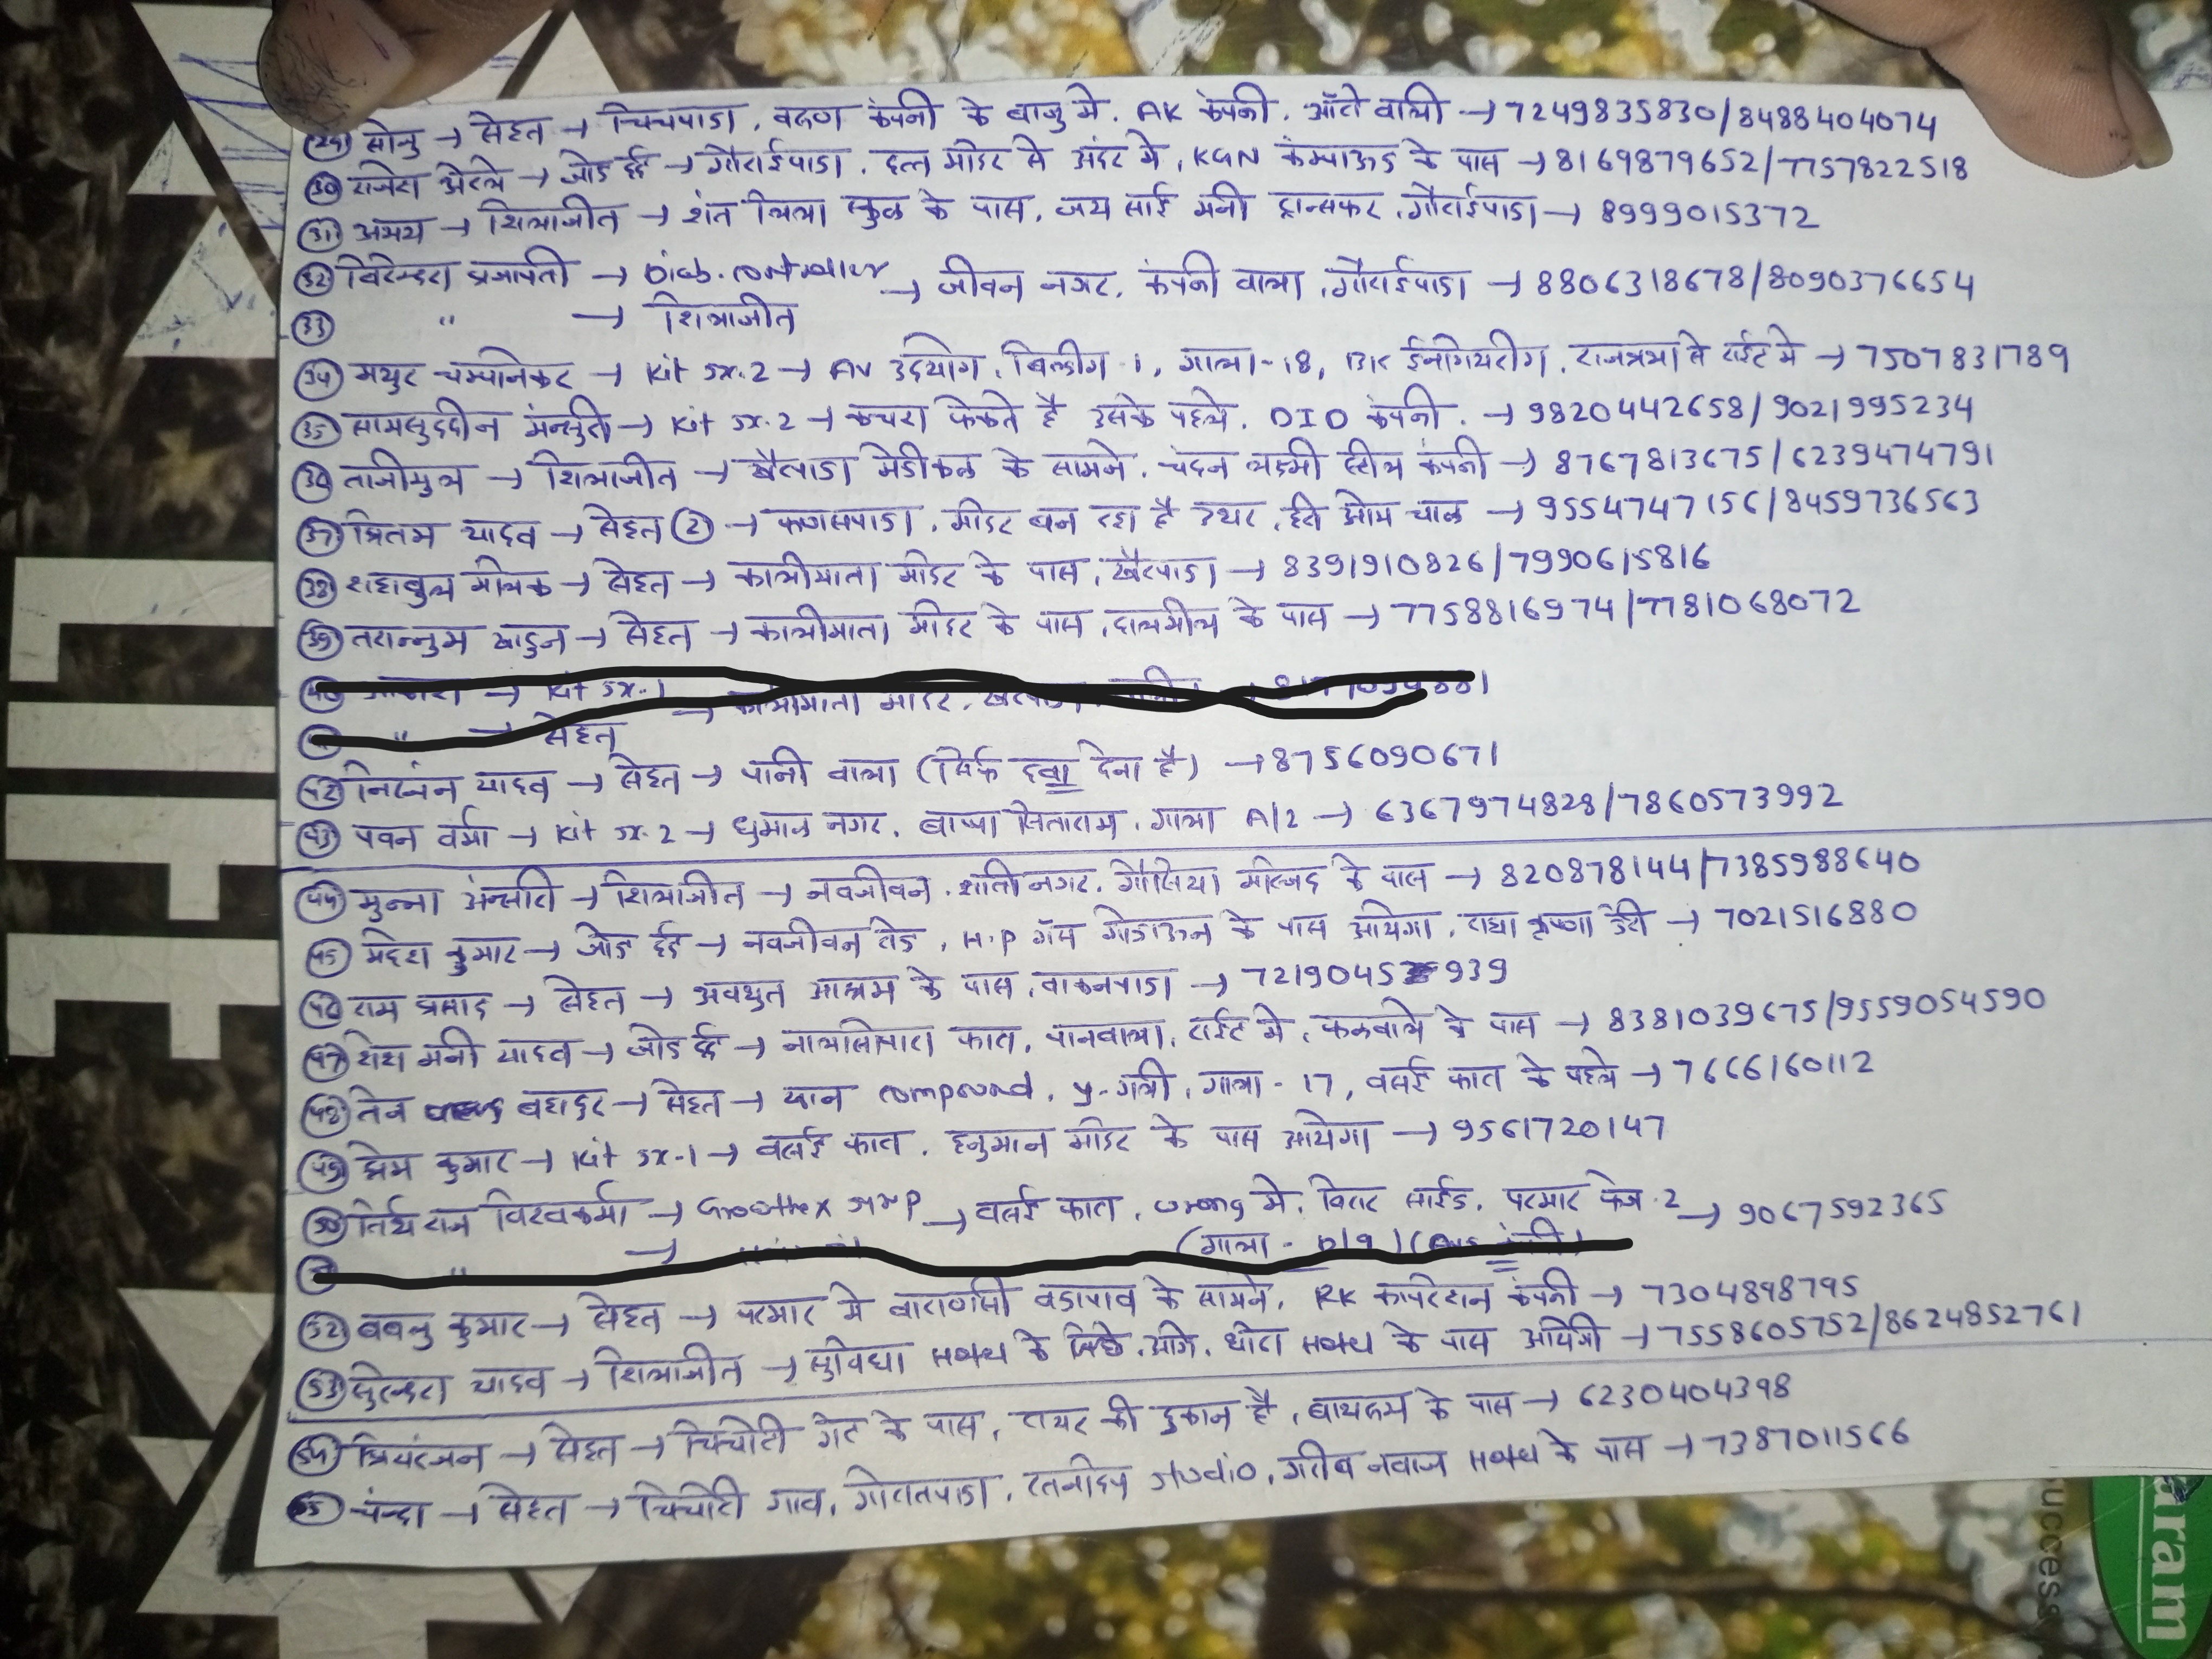 (29) सोनु → सेहत → चिंचपाडा, वरुण कंपनी के बाजु मे, AK कंपनी, → 7249835830/8488404074
(30) राजेश → जोड दर्द → गौराईपाडा, दत्त मंदिर से अंदर मे, KGN कम्पाऊंड के पास → 8169879652/7757822518
(31) अभय → शिलाजीत → स्कुल के पास, जय साई मनी ट्रान्सफर, गौराईपाडा → 8999015372
(32) विरेन्द्रा प्रजापती → जीवन नगर, कंपनी वाला, गौराईपाडा → 8806318678/8090376654
(33) " → शिलाजीत
(34) मयुर चम्पानेकर → Kit sx-2 → AV उदयोग, बिल्डींग-1, गाला-18, ईनजिनियरींग, से राईट मे → 7507831789
(35) सामसुददीन मंन्सुरी → Kit sx-2 → कचरा फेकते है उसके पहले, DIO कंपनी. → 9820442658/9021995234
(36) ताजीमुल → शिलाजीत → मेडीकल के सामने, चंदन लक्ष्मी स्टील कंपनी → 8767813675/6239474791
(37) प्रितम यादव → सेहत (2) → फणसपाडा, मंदिर बन रहा है उधर, हरी ओम चाळ → 9554747156/8459736563
(38) शहाबुल मलिक → सेहत → कालीमाता मंदिर के पास, खैरपाडा → 8391910826/7990615816
(39) तरान्नुम खातुन → सेहत → कालीमाता मंदिर के पास, के पास → 7758816974/7781068072
→ Kit sx-1 → कालीमाता मंदिर,
" → सेहत
(42) निरंजन यादव → सेहत → पानी वाला (सिर्फ दवा देना है) → 8756090671
(43) पवन वर्मा → Kit sx-2 → धुमाळ नगर, बाप्पा सिताराम, गाला A/2 → 6367974828/7860573992
(44) मुन्ना अंन्सारी → शिलाजीत → नवजीवन, शांती नगर, गौसिया मस्जिद के पास → 820878144/7385988640
(45) महेश कुमार → जोड दर्द → नवजीवन रोड, H.P गॅस गोडाऊन के पास आयेगा, राधा कृष्णा डेरी → 7021516880
(46) राम प्रसाद → सेहत → अवधुत आश्रम के पास, वाकनपाडा → 7219045 939
(47) शेश मनी यादव → जोड दर्द → नालासोपारा फाटा, पानवाला, राईट मे, फलवाले के पास → 8381039675/9559054590
(48) तेज बहादुर → सेहत → compound, y-गल्ली, गाला - 17, वसई फाटा के पहले → 7666160112
(49) प्रेम कुमार → Kit sx-1 → वसई फाटा, हनुमान मंदिर के पास आयेगा → 9561720147
(50) तिर्थ राज विश्वकर्मा → → वसई फाटा, wrong मे, विरार साईड, परमार फेज 2 → 9067592365
" → (गाला -
(52) बबलु कुमार → सेहत → परमार मे वाराणसी वडापाव के सामने, RK कार्परेशन कंपनी → 7304898795
(53) सुरेन्द्रा यादव → शिलाजीत → सुविधा Hotel के पिछे, आगे, Hotel के पास आयेगी → 7558605752/8624852761
(54) प्रियरंजन → सेहत → चिंचोटी गेट के पास, टायर की दुकान है, बाथरुम के पास → 6230404398
(55) चंन्द्रा → सेहत → चिंचोटी गाव, studio, गरीब नवाज Hotel के पास → 7387011566
uccess
aram